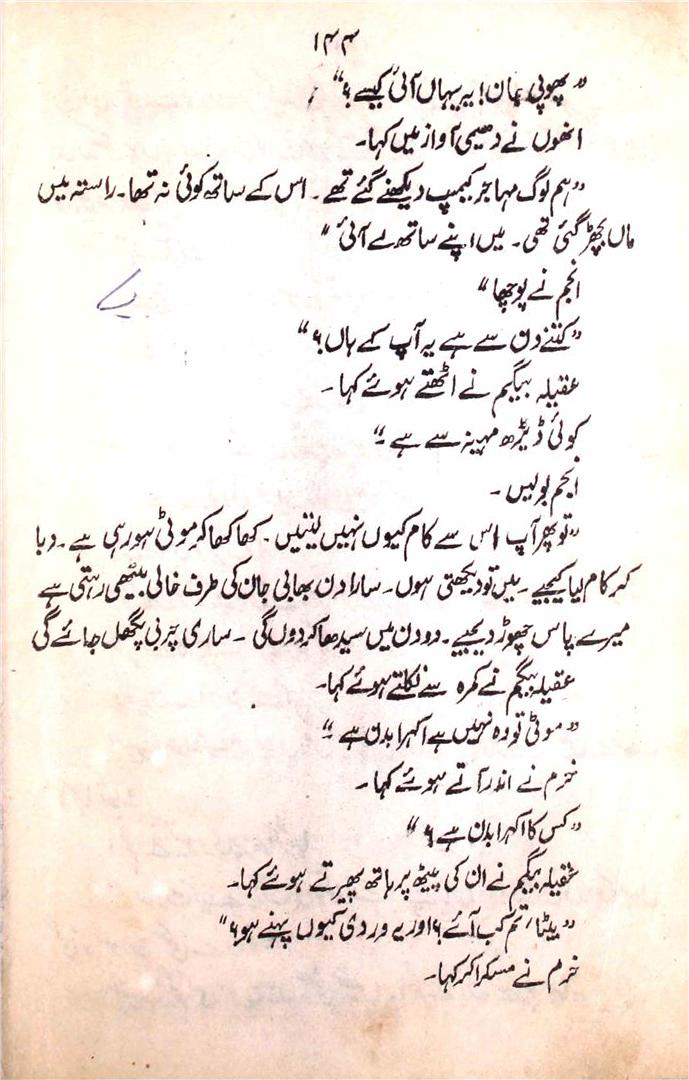 ۱۴۴
"پھوپی جان! یہ یہاں آئی کیسے؟"
انھوں نے دھیمی آواز میں کہا۔
"ہم لوگ مہاجر کیمپ دیکھنے گئے تھے۔ اس کے ساتھ کوئی نہ تھا۔ راستہ میں
ماں بچھڑ گئی تھی۔ میں اپنے ساتھ لے آئی"
انجم نے پوچھا"
"کتنے دن سے ہے یہ آپ کے ہاں؟"
عقیلہ بیگم نے اٹھتے ہوئے کہا۔
کوئی ڈیڑھ مہینہ سے ہے۔"
انجم بولیں۔
"تو پھر آپ اس سے کام کیوں نہیں لیتیں۔ کھا کھا کر موٹی ہو رہی ہے۔ دبا
کر کام لیا کیجیے۔ میں تو دیکھتی ہوں۔ سارا دن بھابی جان کی طرف خالی بیٹھی رہتی ہے
میرے پاس چھوڑ دیجیے۔ دو دن میں سیدھا کر دوں گی۔ ساری چربی پگھل جائے گی
عقیلہ بیگم نے کمرہ سے نکلتے ہوئے کہا۔
"موٹی تو وہ نہیں ہے اکہرا بدن ہے۔"
خرم نے اندر آتے ہوئے کہا۔
"کس کا اکہرا بدن ہے؟"
عقیلہ بیگم نے ان کی پیٹھ پر ہاتھ پھیرتے ہوئے کہا۔
"بیٹا، تم کب آئے؟ اور یہ وردی کیوں پہنے ہو؟"
خرم نے مسکرا کر کہا۔